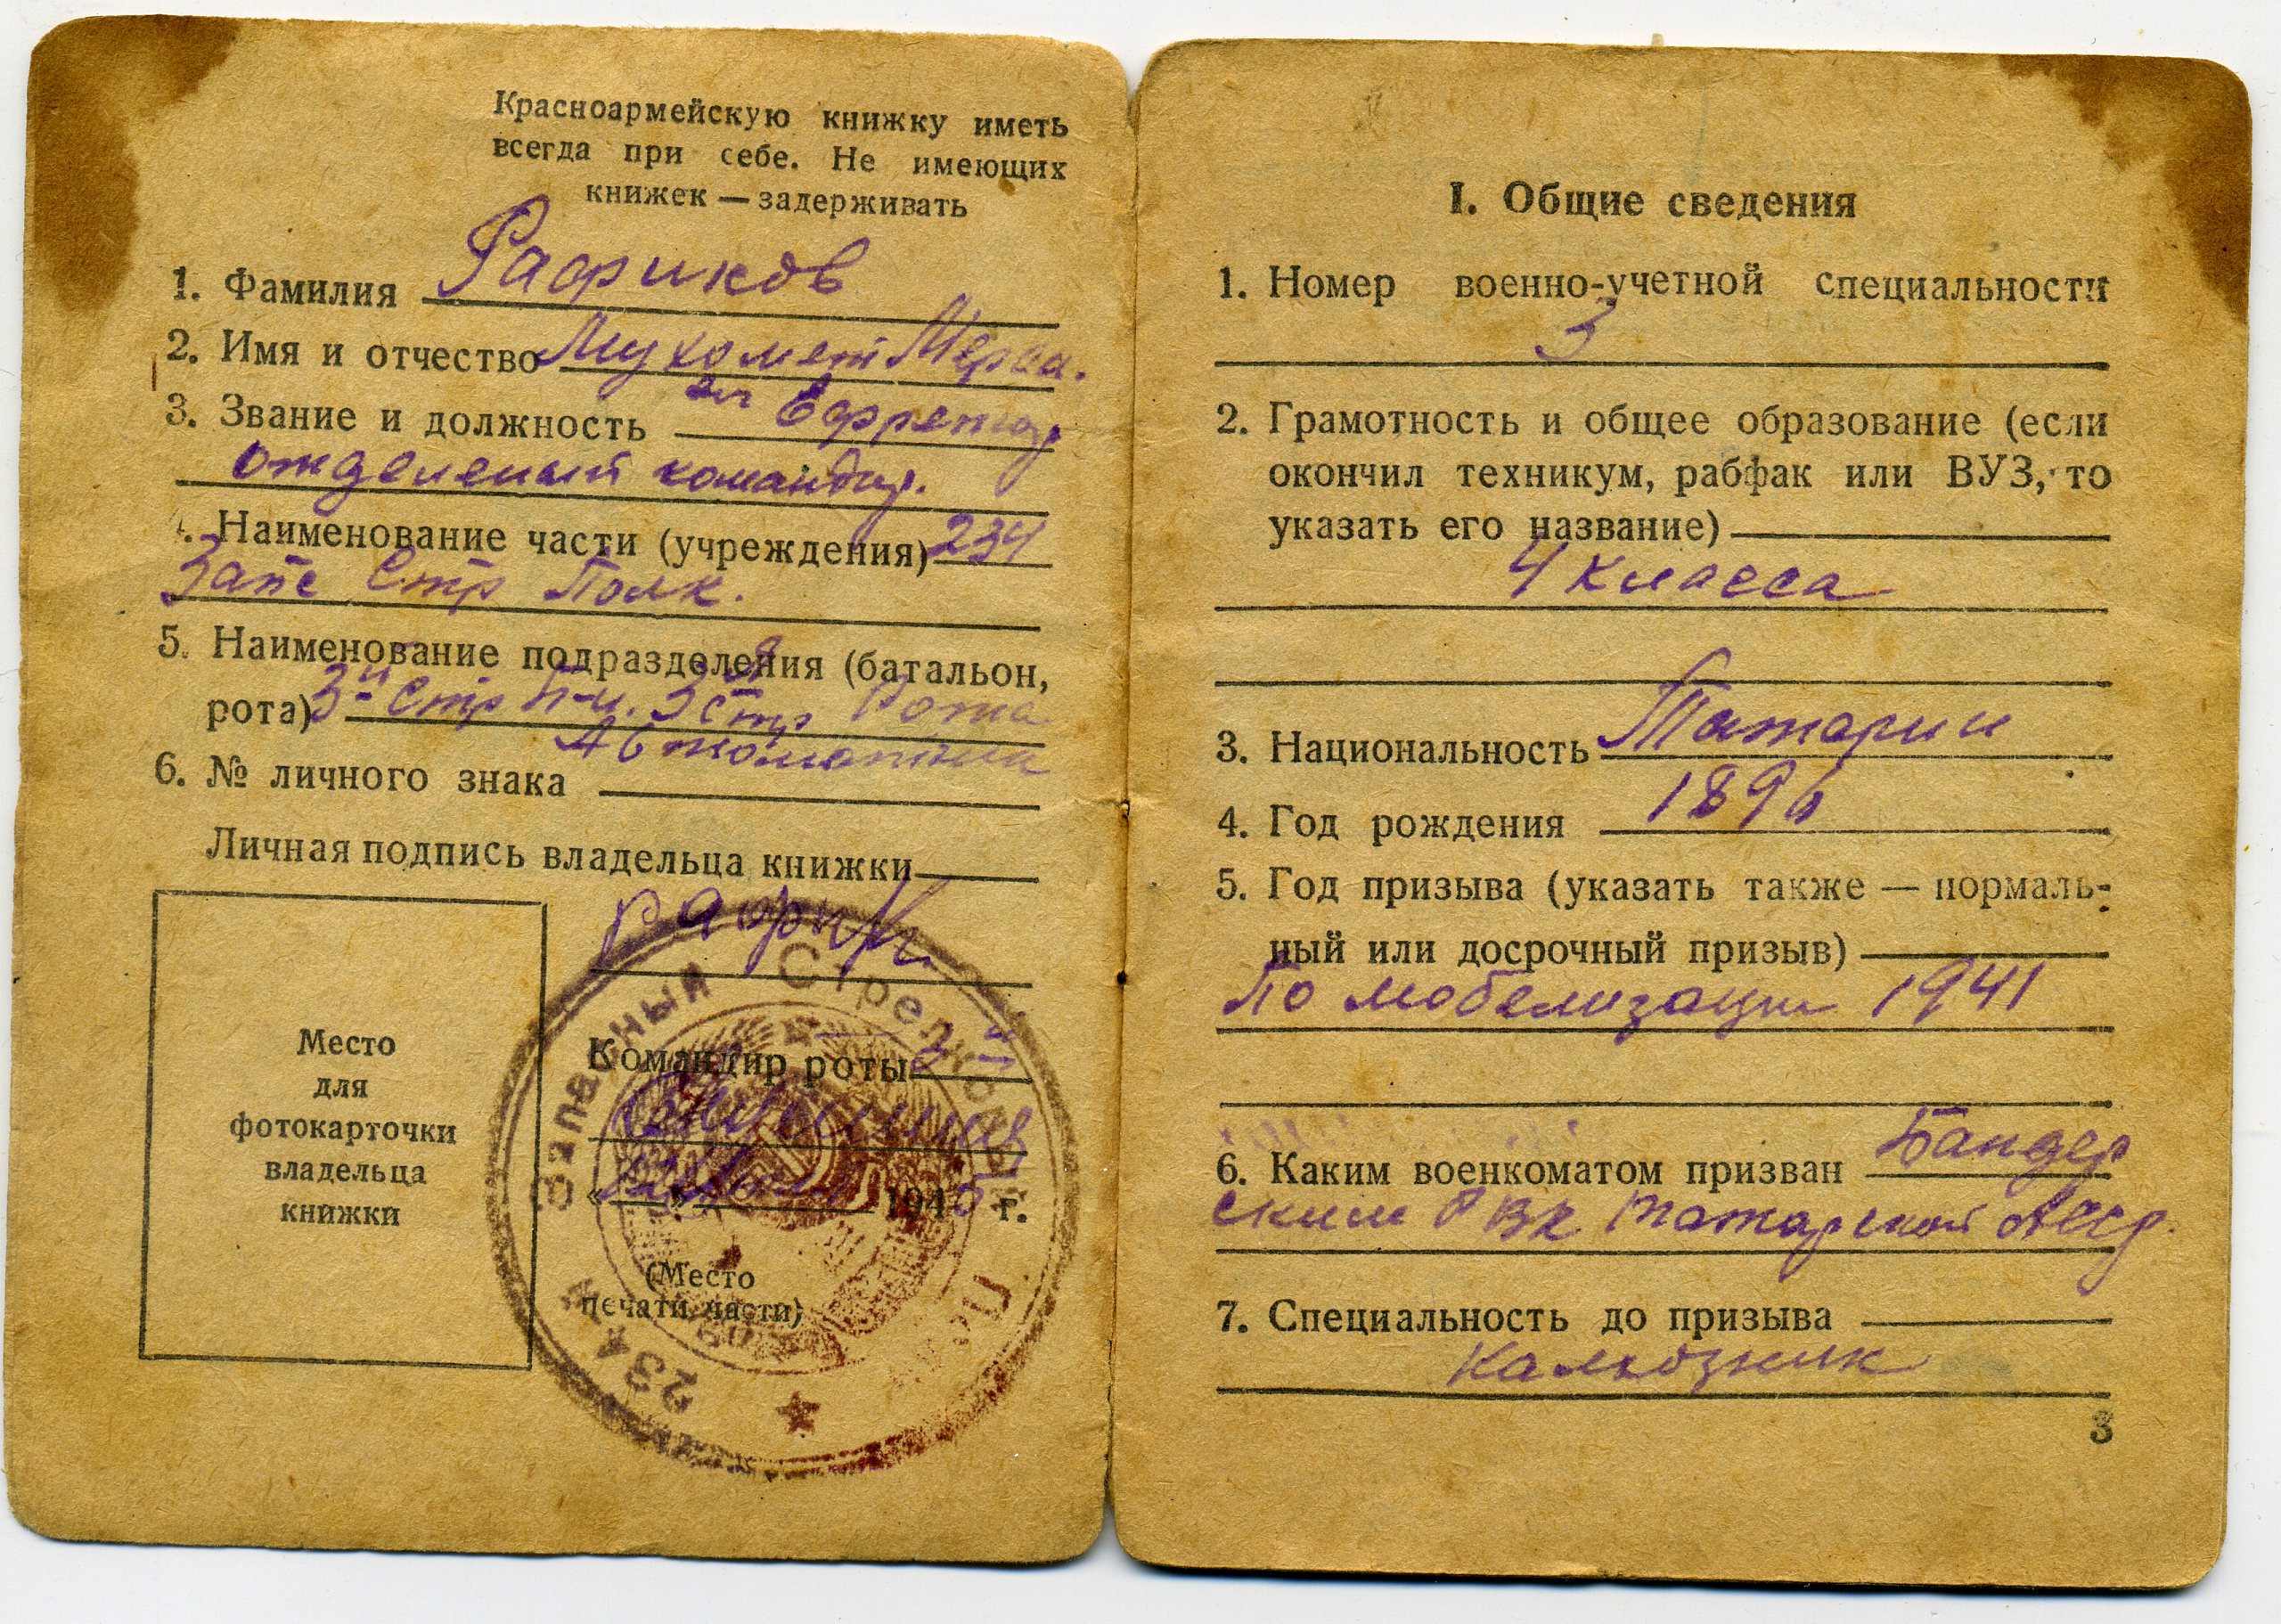 Красноармейскую книжку иметь
всегда при себе. Не имеющих
книжек — задерживать
1. Фамилия Рафиков
2. Имя и отчество Мухомет Мерса.
вич
3. Звание и должность Ефрейтор
отделеный командир.
4. Наименование части (учреждения) 234
Запс Стр Полк.
5. Наименование подразделения (батальон,
рота) 3й Стр б-н. 3я стр Рота
Автоматчик
6. № личного знака
Личная подпись владельца книжки
Рафик
Место
для
фотокарточки
владельца
книжки
Командир роты
« » 1945 г.
(Место
печати части)
234 й Запасный Стрелковый Полк
I. Общие сведения
1. Номер военно-учетной специальности
3
2. Грамотность и общее образование (если
окончил техникум, рабфак или ВУЗ, то
указать его название)
4 класса
3. Национальность Татарин
4. Год рождения 1896
5. Год призыва (указать также — нормаль-
ный или досрочный призыв)
По мобелизации 1941
6. Каким военкоматом призван Бандер
ским РВК Татарской Асср.
7. Специальность до призыва
Калхозник
3